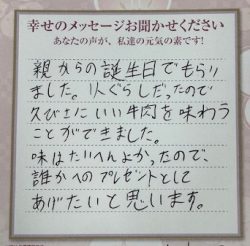 幸せのメッセージお聞かせください
あなたの声が、私達の元気の素です!
親からの誕生日でもらい
ました。1人ぐらしだったので
久びさにいい牛肉を味わう
ことができました。
味はたいへんよかったので、
誰かへのプレゼントとして
あげたいと思います。